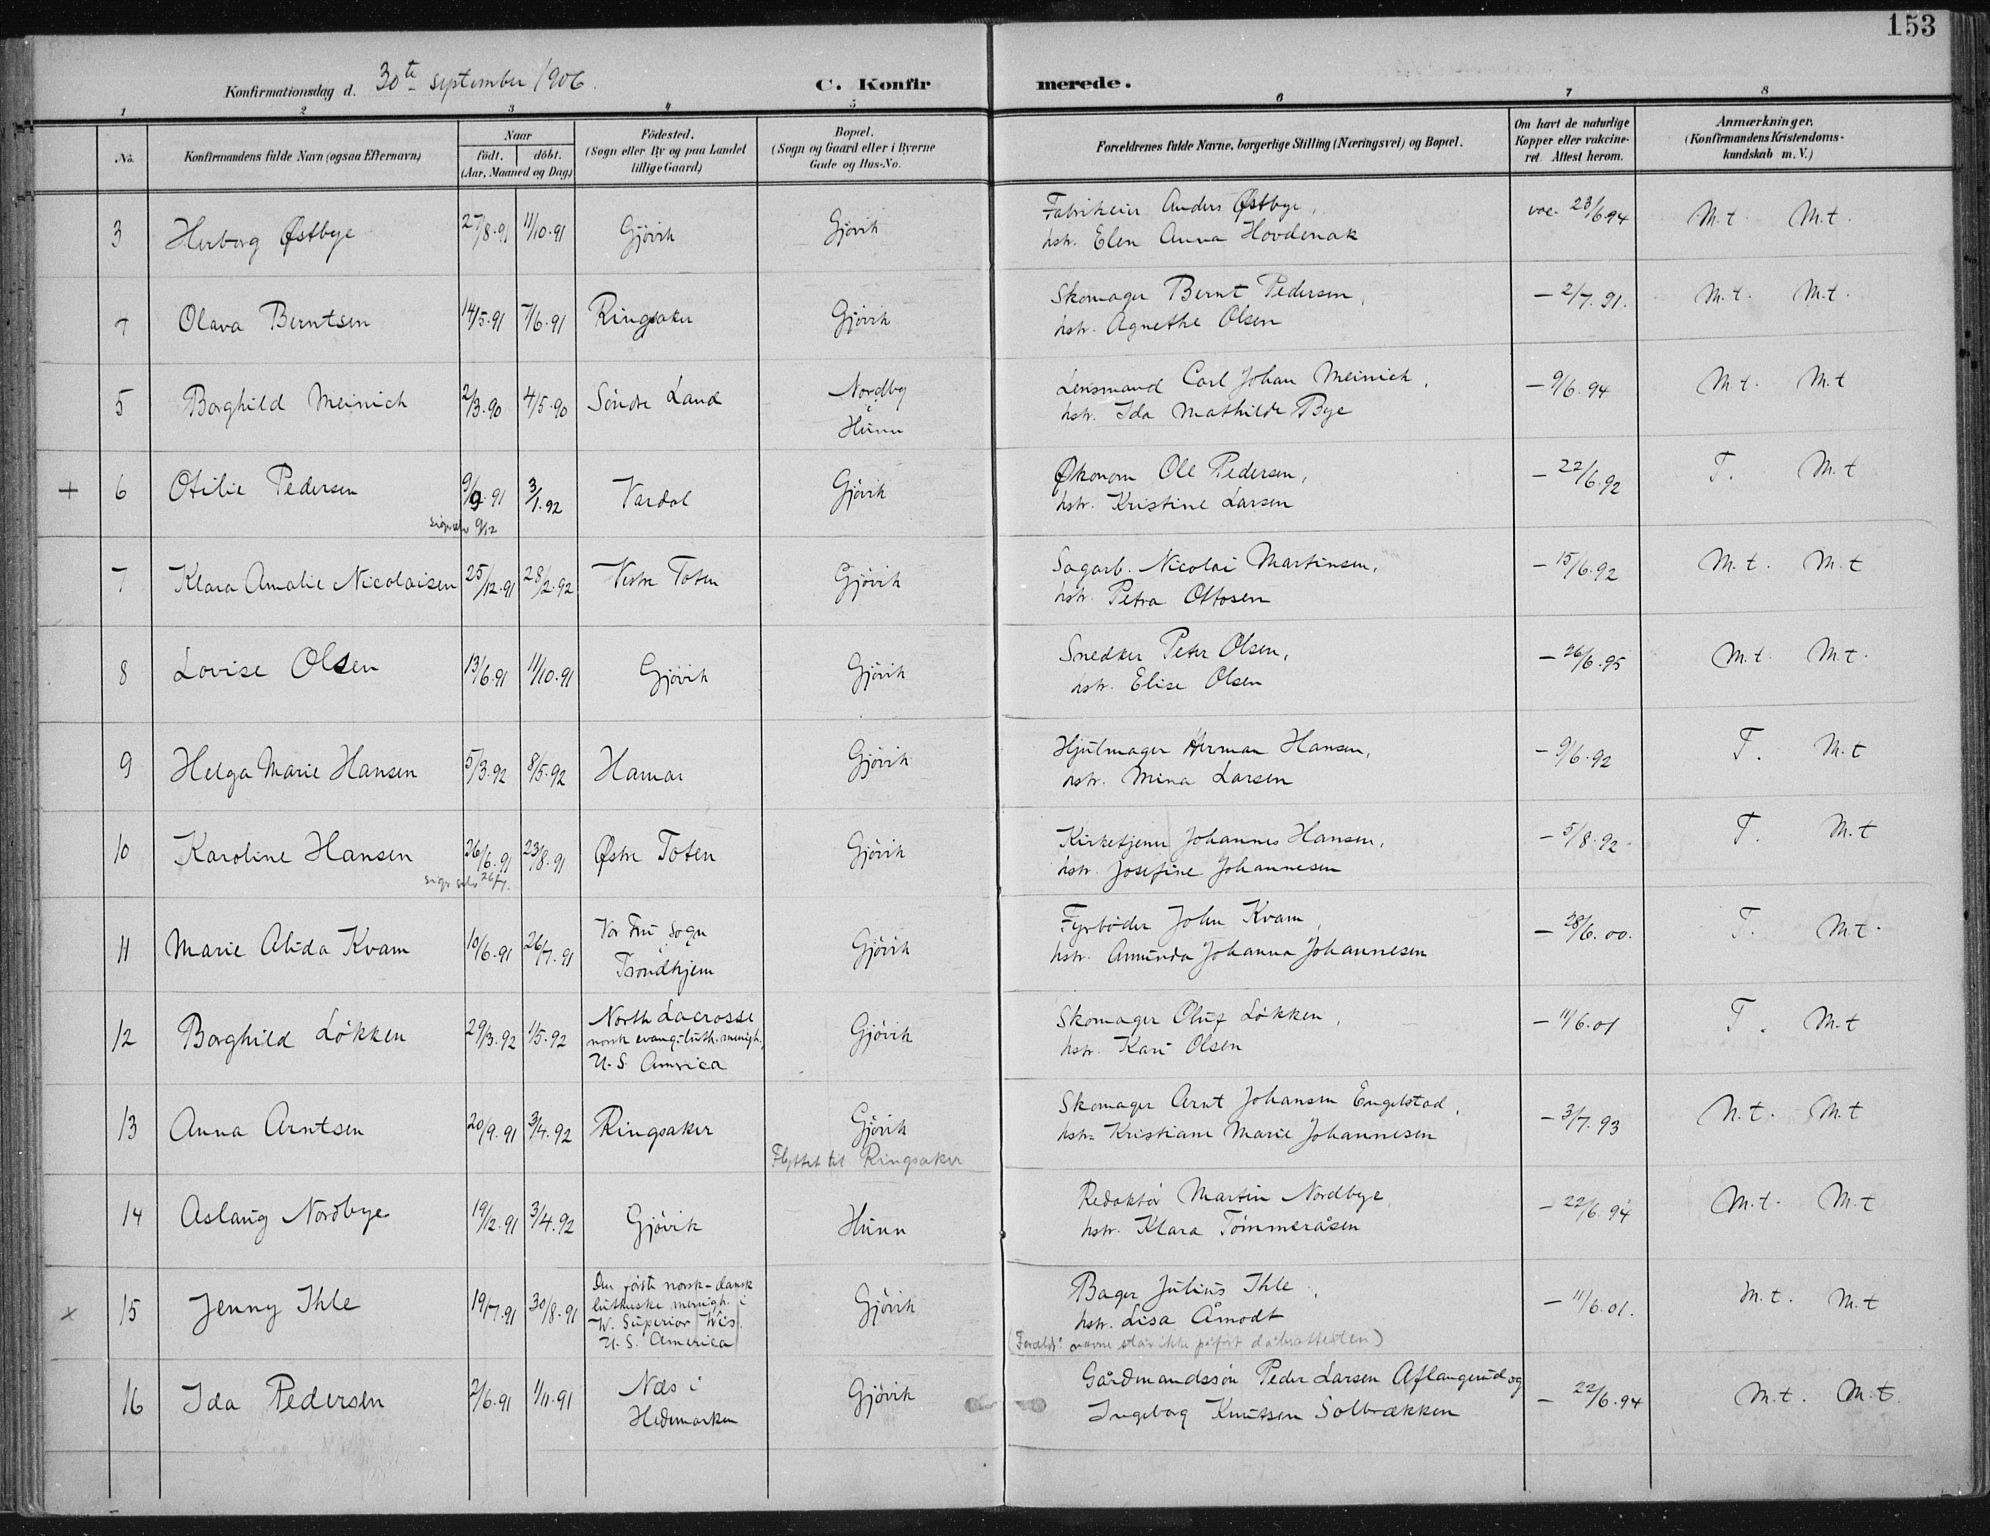 153
Konfirmationsdag d. 30te september 1906.
C. Konfirmerede.
1 2 3 4 5 6 7 8
No.
Konfirmandens fulde Navn (ogsaa Efternavn)
Naar
födt. döbt.
(Aar, Maaned og Dag)
Födested.
(Sogn eller By og paa Landet
lillige Gaard)
Bopæl.
(Sogn og Gaard eller i Byerne
Gade og Hus-No.
Forældrenes fulde Navne, borgerlige Stilling (Næringsvei) og Bopæl.
Om havt de naturlige
Kopper eller vakcine-
ret. Attest herom.
Anmærkninger.
(Konfirmandens Kristendoms-
kundskab m. V.)
3 Herborg Østbye 27/8.91 11/10.91 Gjövik Gjövik
Fabrikeier Anders Østbye,
hstr. Elen Anna Hovdenak
vac. 23/6 94 M.t. M.t.
Olava Berntsen 14/5.91 7/6.91 Ringsaker Gjövik
Skomager Bernt Pedersen,
hstr. Agnethe Olsen
– 2/7.91. M.t. M.t.
5 Borghild Meinich 2/3.90 4/5.90 Söndre Land
Nordby
i
Hunn
Lensmand Carl Johan Meinich,
hstr. Ida Mathilde Bye
– 9/6.94 M.t. M.t
+ 6 Otilie Pedersen 9/9.91 3/1.92 Vardal Gjövik
9/12
Økonom Ole Pedersen,
hstr. Kristine Larsen
– 22/6.92 T. M.t
7 Klara Amalie Nicolaisen 25/12.91 28/2.92 Vestre Toten Gjövik
Sagarb. Nicolai Martinsen,
hstr. Petra Ottosen
– 15/6.92 M.t. M.t
8 Lovise Olsen 13/6.91 11/10.91 Gjövik Gjövik
Snedker Peter Olsen,
hstr. Elise Olsen
– 26/6.95 M.t. M.t.
9 Helga Marie Hansen 5/3.92 8/5.92 Hamar Gjövik
Hjulmager Herman Hansen,
hstr. Mina Larsen
– 9/6.92 T. M.t
10 Karoline Hansen 26/6.91 23/8.91 Østre Toten Gjövik
26/7.
Kirketjener Johannes Hansen,
hstr. Josefine Johannesen
– 5/8.92 T. M.t
11 Marie Alida Kvam 10/6.91 26/7.91
Vor Fru Sogn
i
Trondhjem
Gjövik
Fyrböder John Kvam,
hstr. Amunda Johanna Johannesen
– 28/6.00. T. M.t.
12 Borghild Lökken 29/3.92 1/5.92
North Lacrosse
norsk evang. luth. menigh.,
U.S. America
Gjövik
Skomager Oluf Lökken,
hstr. Kari Olsen
– 11/6.01 T. M.t
13 Anna Arntsen 20/9.91 3/4.92 Ringsaker Gjövik
Flyttet til Ringsaker
Skomager Arnt Johansen Engelstad,
hstr. Kristiane Marie Johannesen
– 3/7.93 M.t. M.t
14 Aslaug Nordbye 19/12.91 3/4.92 Gjövik Hunn
Redaktör Martin Nordbye,
hstr. Klara Tömmeråsen
– 22/6.94 M.t. M.t
x 15 Jenny Ihle 19/7.91 30/8.91
Den förste norsk-dansk
lutherske menigh. i
W. Superior Wis.
U.S. America
Gjövik
Bager Julius Ihle,
hstr. Lisa Åmodt
navne står ikke påfört dåbsattesten)
– 11/6.01. M.t. M.t
16 Ida Pedersen 2/6.91 1/11.91
Næs i
Hedemarken
Gjövik
Gårdmandssön Peder Larsen Aflangerud og
Ingeborg Knutsen Solbrækken
– 22/6.94 M.t. M.t.